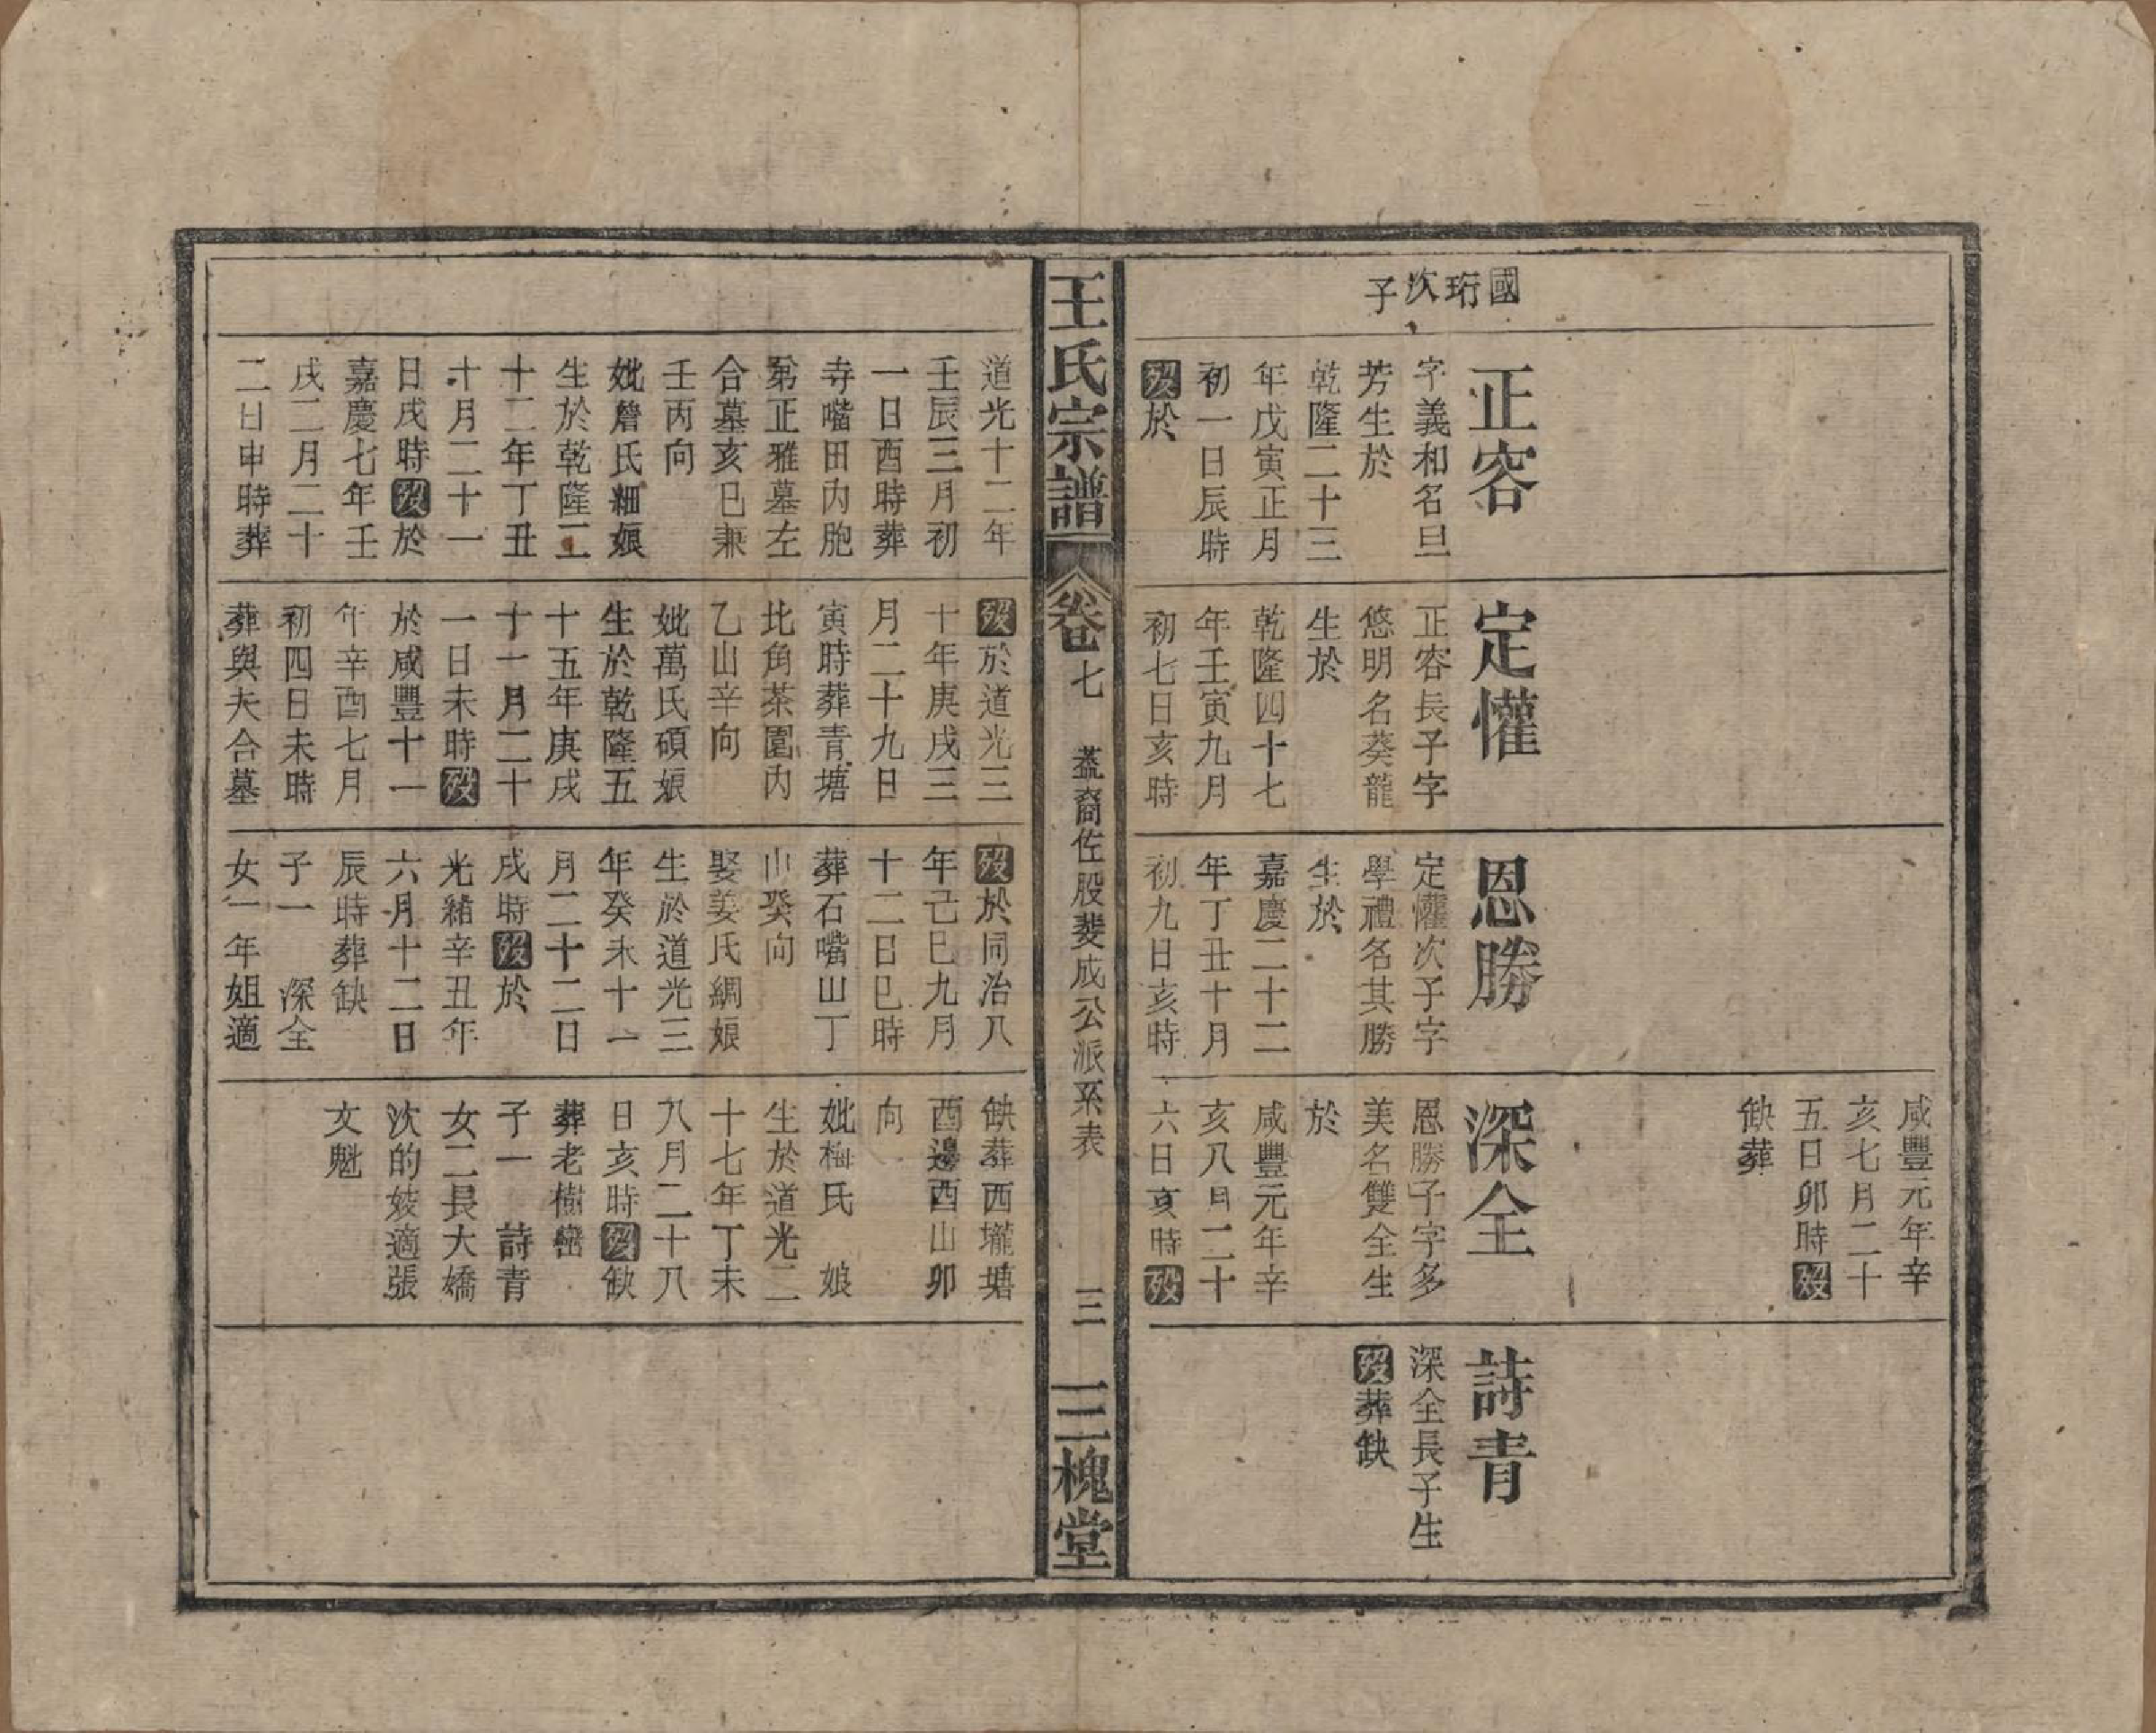 國珩次子
正容
字義和名旦
芳生於
乾隆二十三
年戊寅正月
初一日辰時
歿於
定懽
正容長子字
悠明名葵龍
生於
乾隆四十七
年壬寅九月
初七日亥時
恩勝
定懽次子字
學禮名其勝
生於
嘉慶二十二
年丁丑十月
初九日亥時
咸豐元年辛
亥七月二十
五日卯時歿
缺葬
深全
恩勝子字多
美名雙全生
於
咸豐元年辛
亥八月二十
六日亥時歿
詩青
深全長子生
歿葬缺
王氏宗譜
卷七
蓋裔佐股斐成公派系表
三
三槐堂
道光十二年
壬辰三月初
一日酉時葬
寺嘴田内胞
弟正雅墓左
合墓亥巳兼
壬丙向
妣詹氏細娘
生於乾隆二
十二年丁丑
十月二十一
日戌時歿於
嘉慶七年壬
戌二月二十
二日申時葬
歿於道光三
十年庚戌三
月二十九日
寅時葬青塘
北角茶園内
乙山辛向
妣萬氏碩娘
生於乾隆五
十五年庚戌
十一月二十
一日未時歿
於咸豐十一
年辛酉七月
初四日未時
葬與夫合墓
歿於同治八
年己巳九月
十二日巳時
葬石嘴山丁
山癸向
娶姜氏綢娘
生於道光三
年癸未十一
月二十二日
戌時歿於
光緒辛丑年
六月十二日
辰時葬缺
子一 深全
女一年姐適
缺葬西壠塘
酉邊酉山卯
向
妣梅氏 娘
生於道光二
十七年丁未
八月二十八
日亥時歿缺
葬老樹巒
子一 詩青
女二長大嬌
次的姣適張
文魁